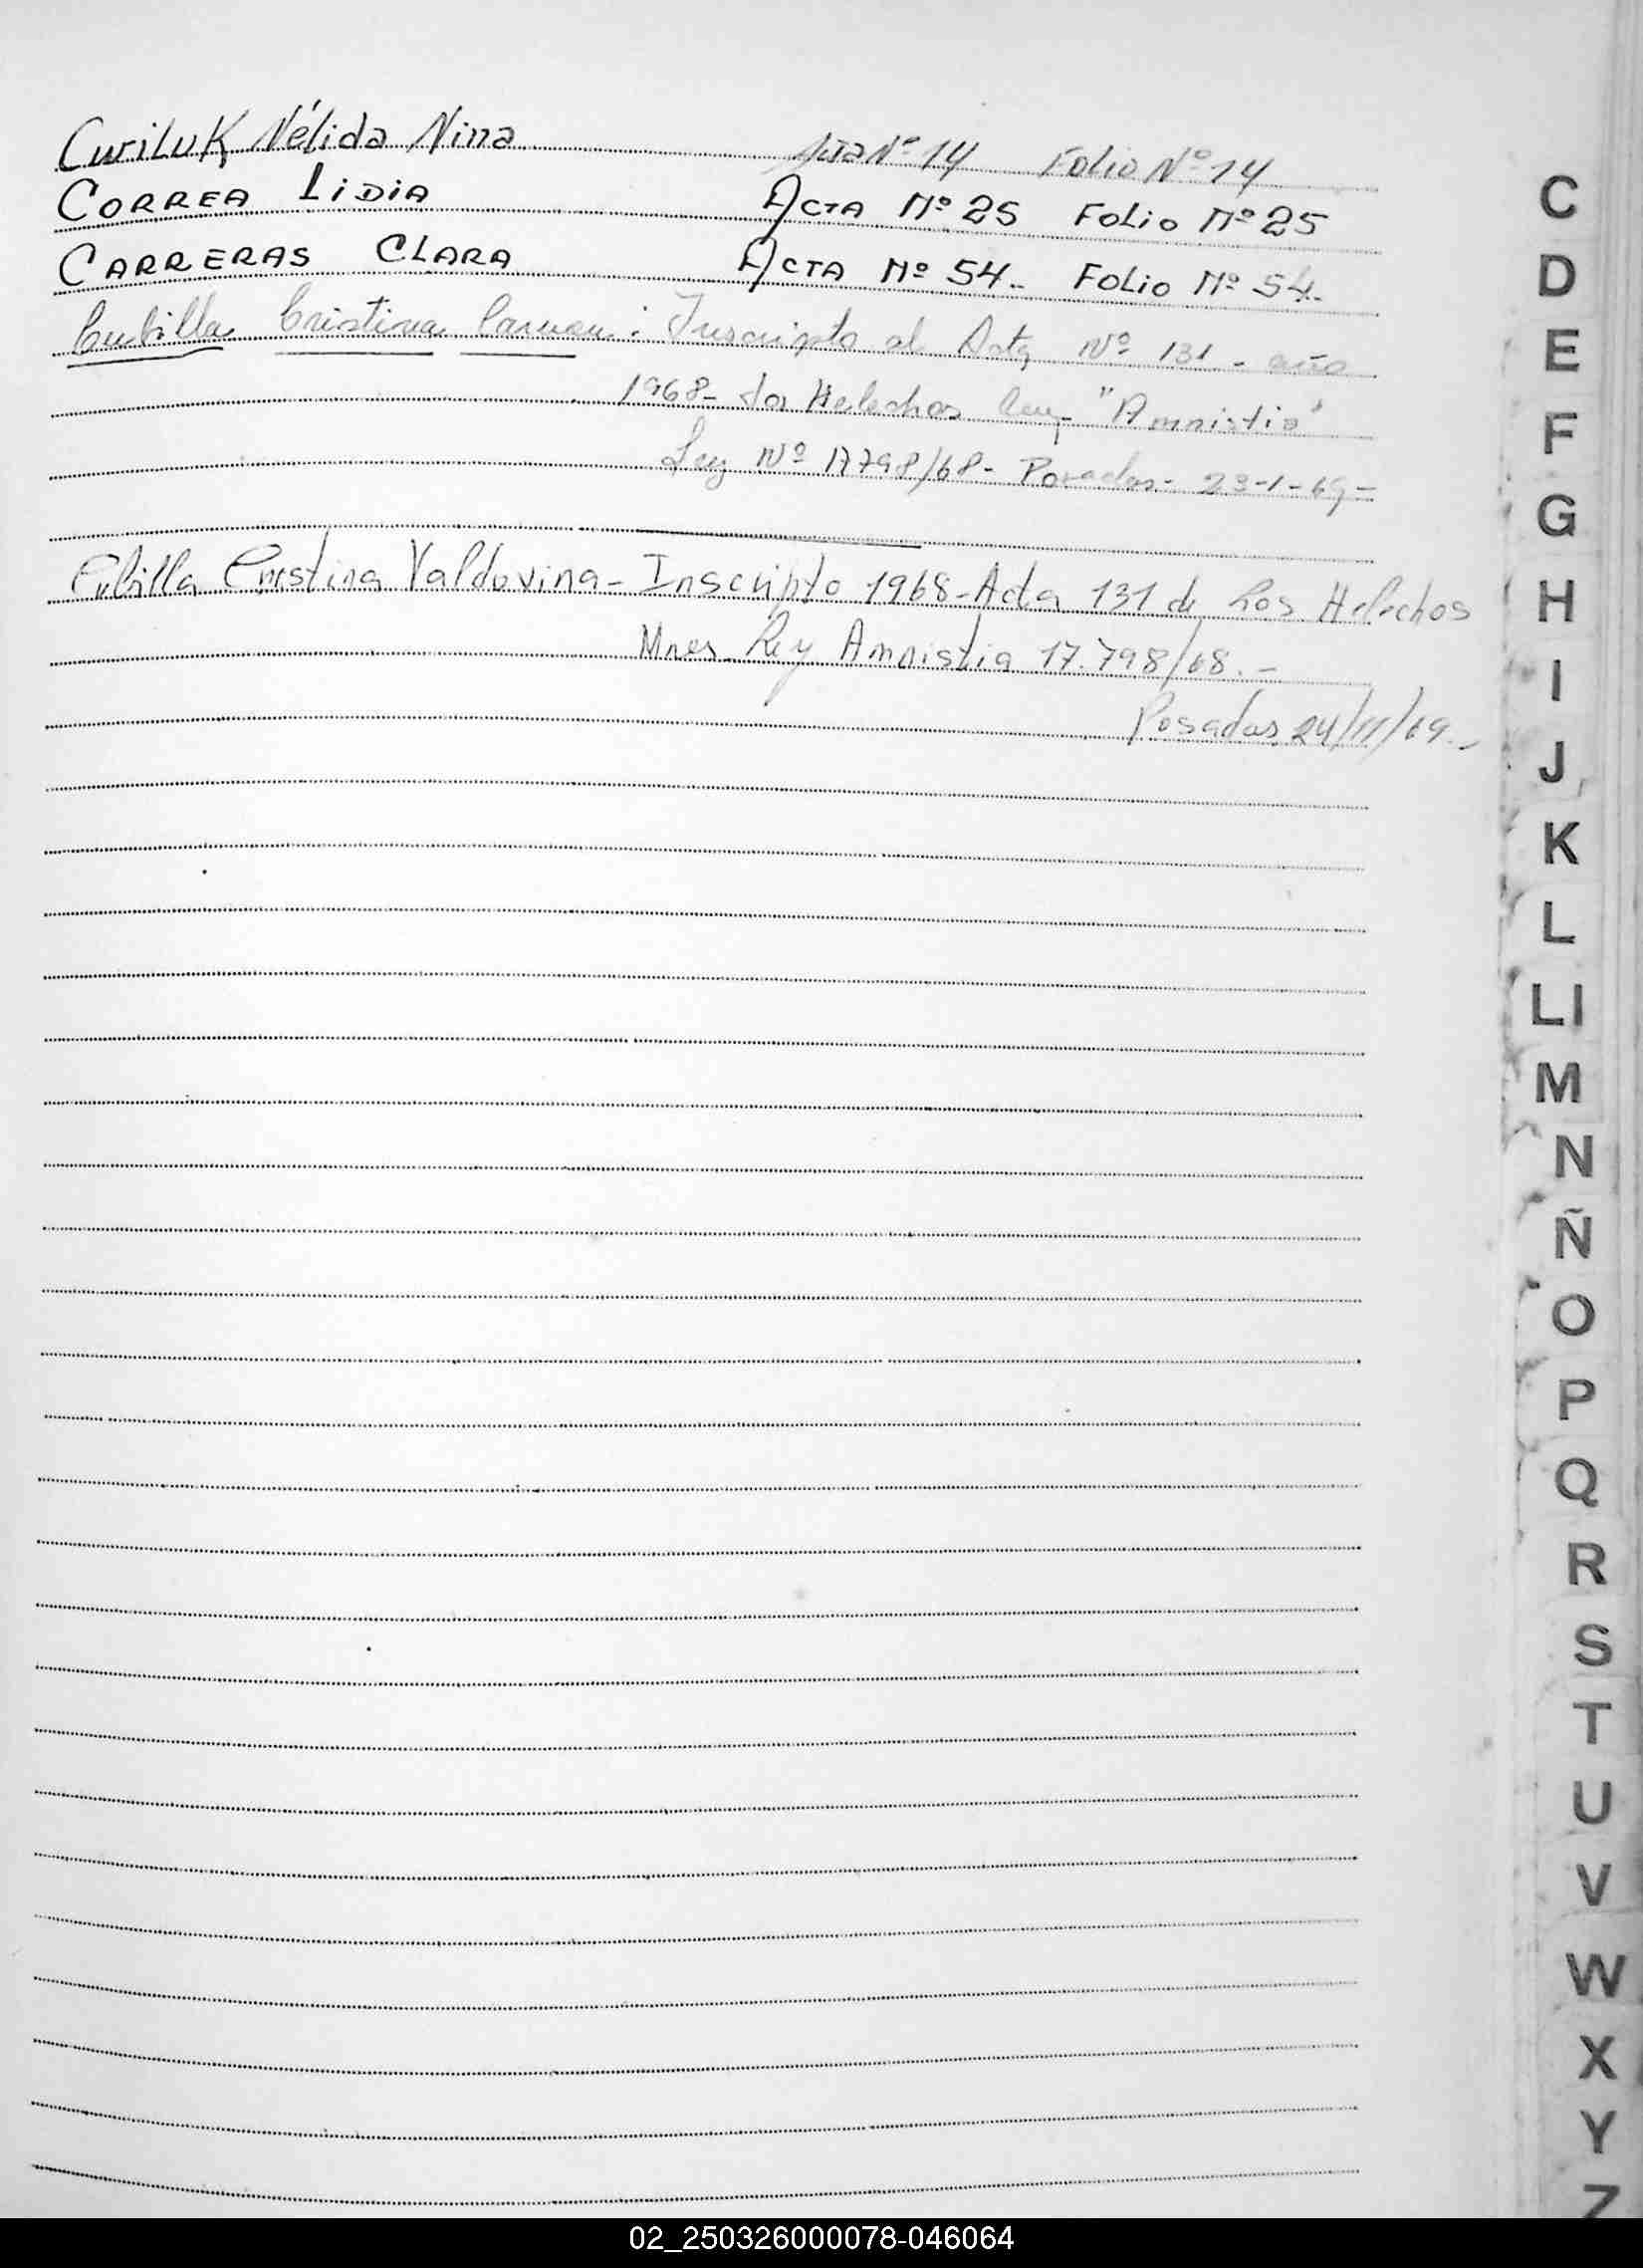 Curiluk Nélida Nina Acta Nº 14 Folio Nº 14
CORREA LIDIA ACTA Nº 25 FOLIO Nº 25
CARRERAS CLARA ACTA Nº 54- FOLIO Nº 54-
Cubilla Cristina Carmen: Inscripto al Acta Nº 131 - año
1968- Los Helechos Ley- "Amnistia"
Ley Nº 17798/68- Posadas- 23-1-69-
Cubilla Cristina Valdovina- Inscripto 1968-Acta 131 de Los Helechos
Mnes. Ley Amnistia 17.798/68.-
Posadas 24/11/69.-
C
D
E
F
G
H
I
J
K
L
Ll
M
N
Ñ
O
P
Q
R
S
T
U
V
W
X
Y
Z
02_250326000078-046064